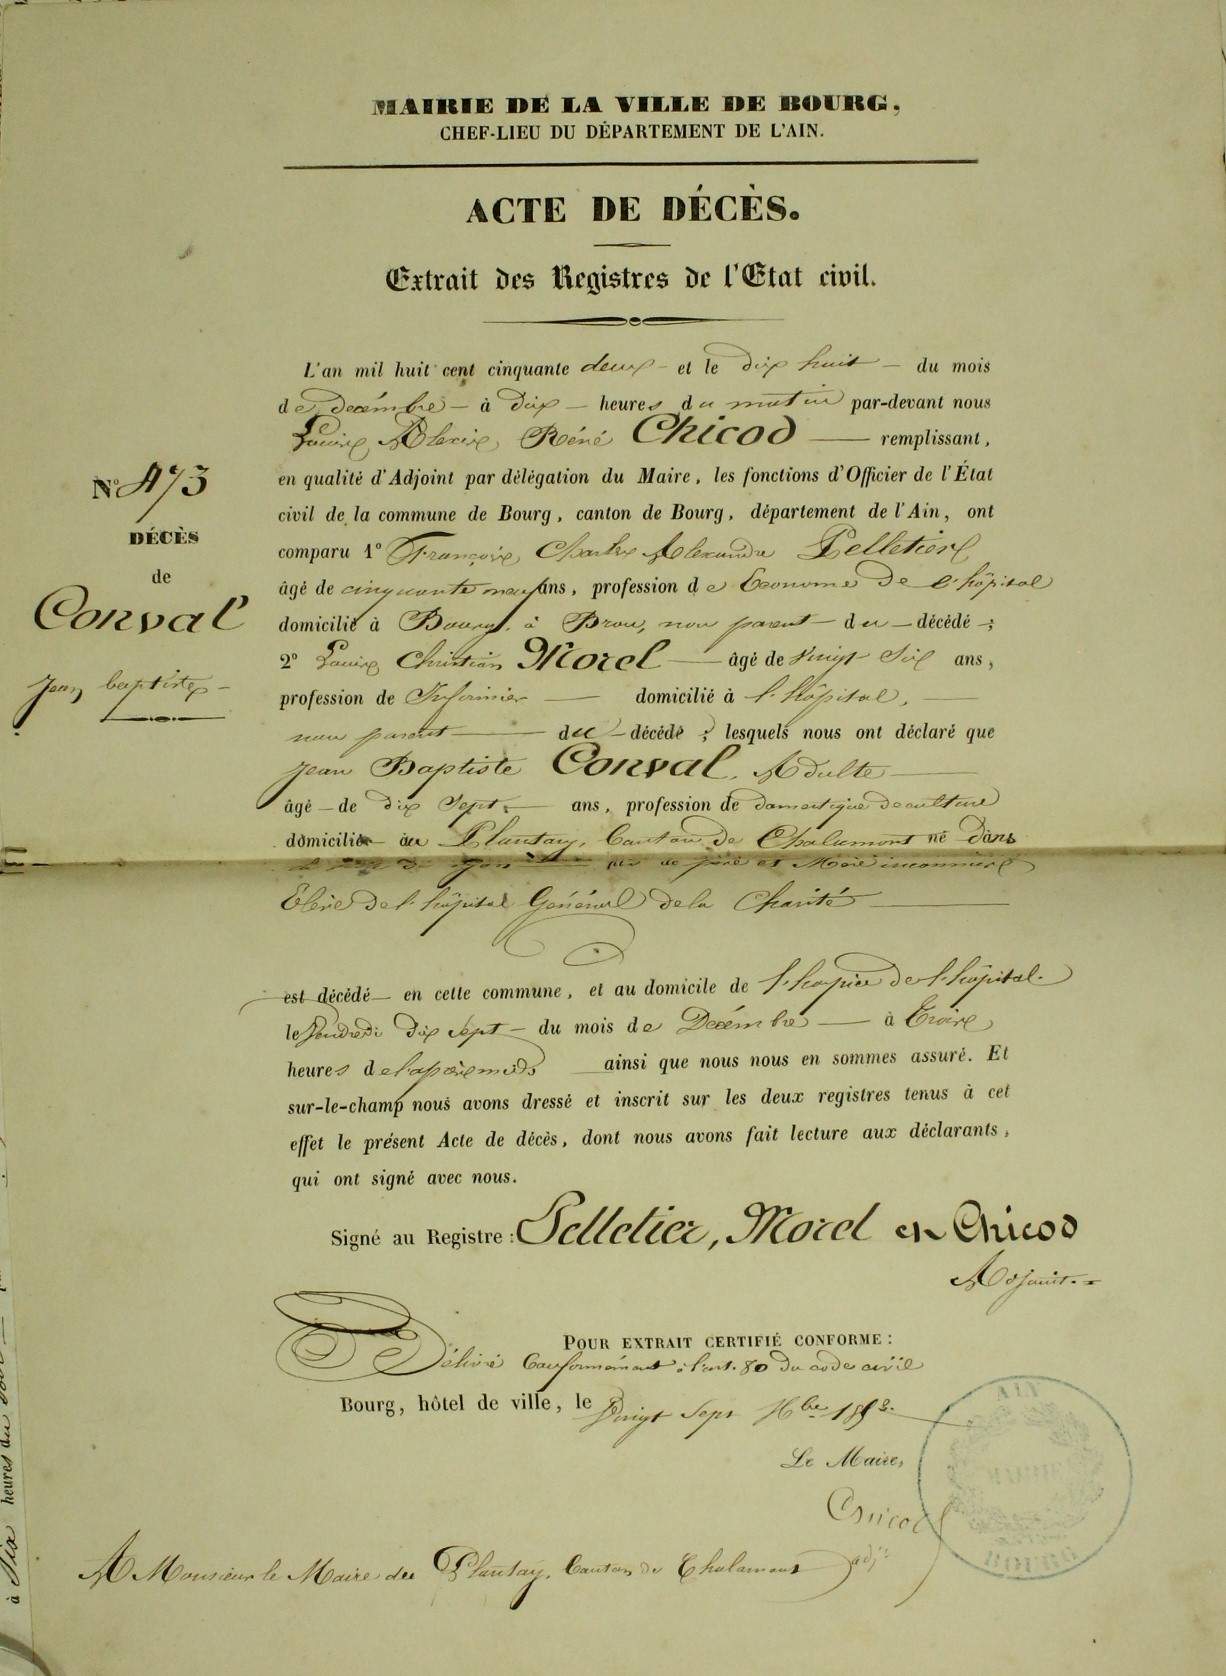 MAIRIE DE LA VILLE DE BOURG,
CHEF-LIEU DU DÉPARTEMENT DE L'AIN.
ACTE DE DÉCÈS.
Extrait des Registres de l'Etat civil.
L'an mil huit cent cinquante deux et le dix huit du mois
de décembre à dix heures du matin par-devant nous
Louis Alexis Réné Chicod remplissant,
en qualité d'Adjoint par délégation du Maire, les fonctions d'Officier de l'État
civil de la commune de Bourg, canton de Bourg, département de l'Ain, ont
comparu 1º François Charles Alexandre Pelletier
âgé de cinquante neuf ans, profession de Econome de l'hôpital
domicilié à Bourg, à Brou, non parent du décédé;
2º Louis Christian Morel âgé de vingt six ans,
profession de Infirmier domicilié à l'hôpital,
non parent du décédé; lesquels nous ont déclaré que
Jean Baptiste Conval, Adulte
âgé de dix sept ans, profession de domestique de culture
domicilié au Plantay, Canton de Chalamont né dans
la de père et Mère inconnus
Elève de l'hôpital Général de la Charité
est décédé en cette commune, et au domicile de l'hospice de l'hôpital.
le Vendredi dix sept du mois de Décembre à trois
heures de l'après midi ainsi que nous nous en sommes assuré. Et
sur-le-champ nous avons dressé et inscrit sur les deux registres tenus à cet
effet le présent Acte de décès, dont nous avons fait lecture aux déclarants,
qui ont signé avec nous.
Signé au Registre: Pelletier, Morel et Chicod
Adjoint.
POUR EXTRAIT CERTIFIÉ CONFORME:
Délivré Conformément à l'art. 80 du code civil
Bourg, hôtel de ville, le Vingt sept Xbre
Le Maire,
Chicod
adj.
A Monsieur le Maire du Plantay, Canton de Chalamont
Nº 473
DÉCÈS
de
Conval
Jean baptiste
AIN
MAIRIE
BOURG
à Six heures du